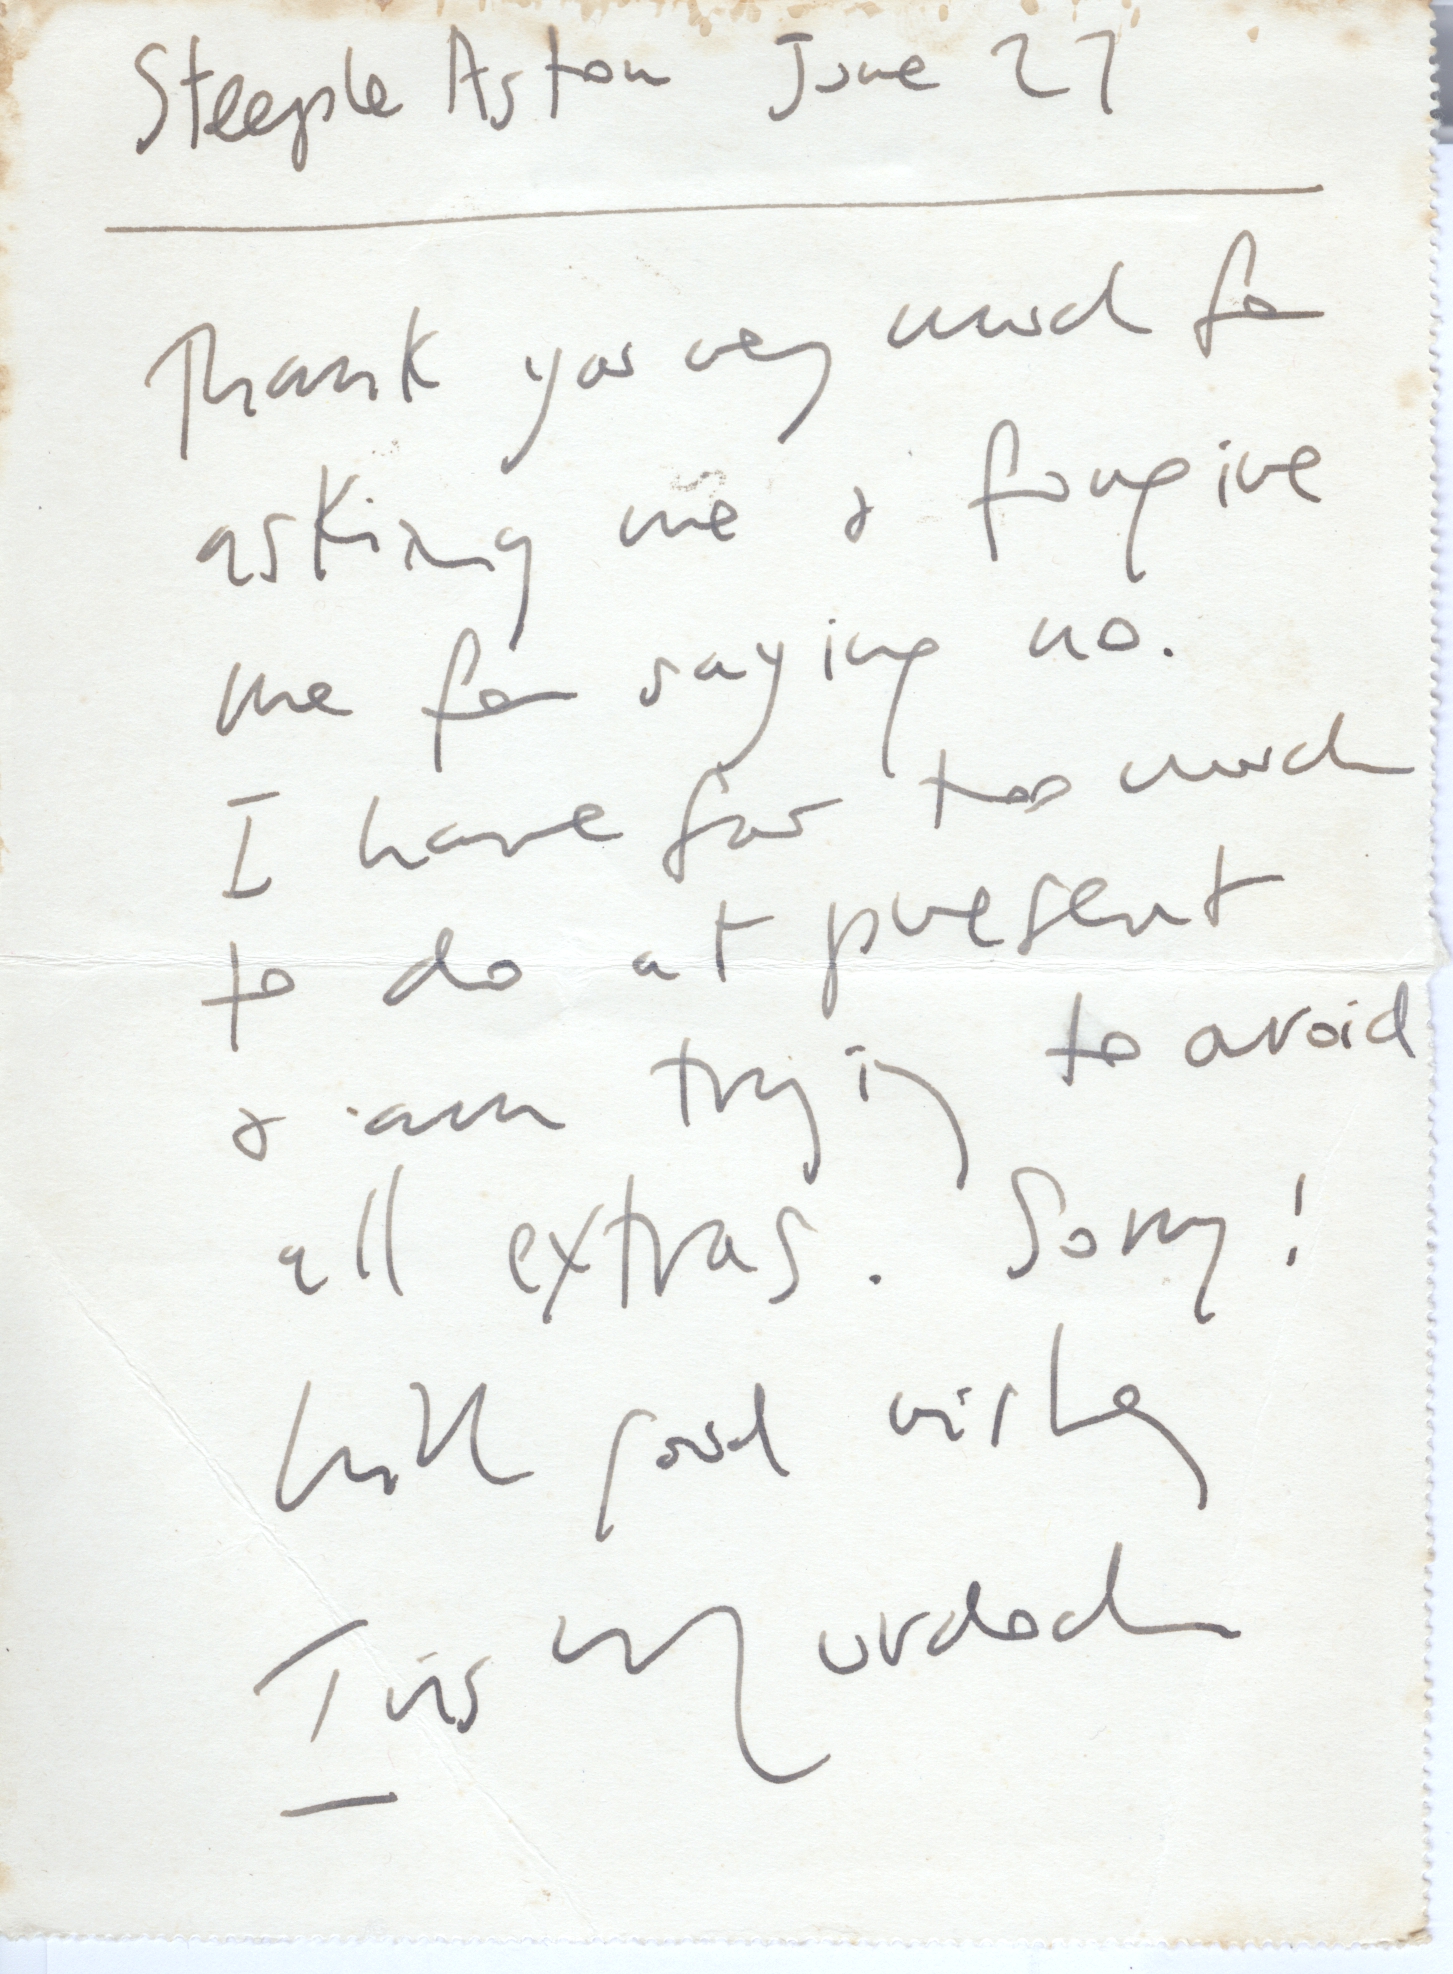 Steeple Aston June 27
Thank you very much for
asking me & forgive
me for saying no.
I have far too much
to do at present
& am trying to avoid
all extras. Sorry!
With good wishes
Iris Murdoch